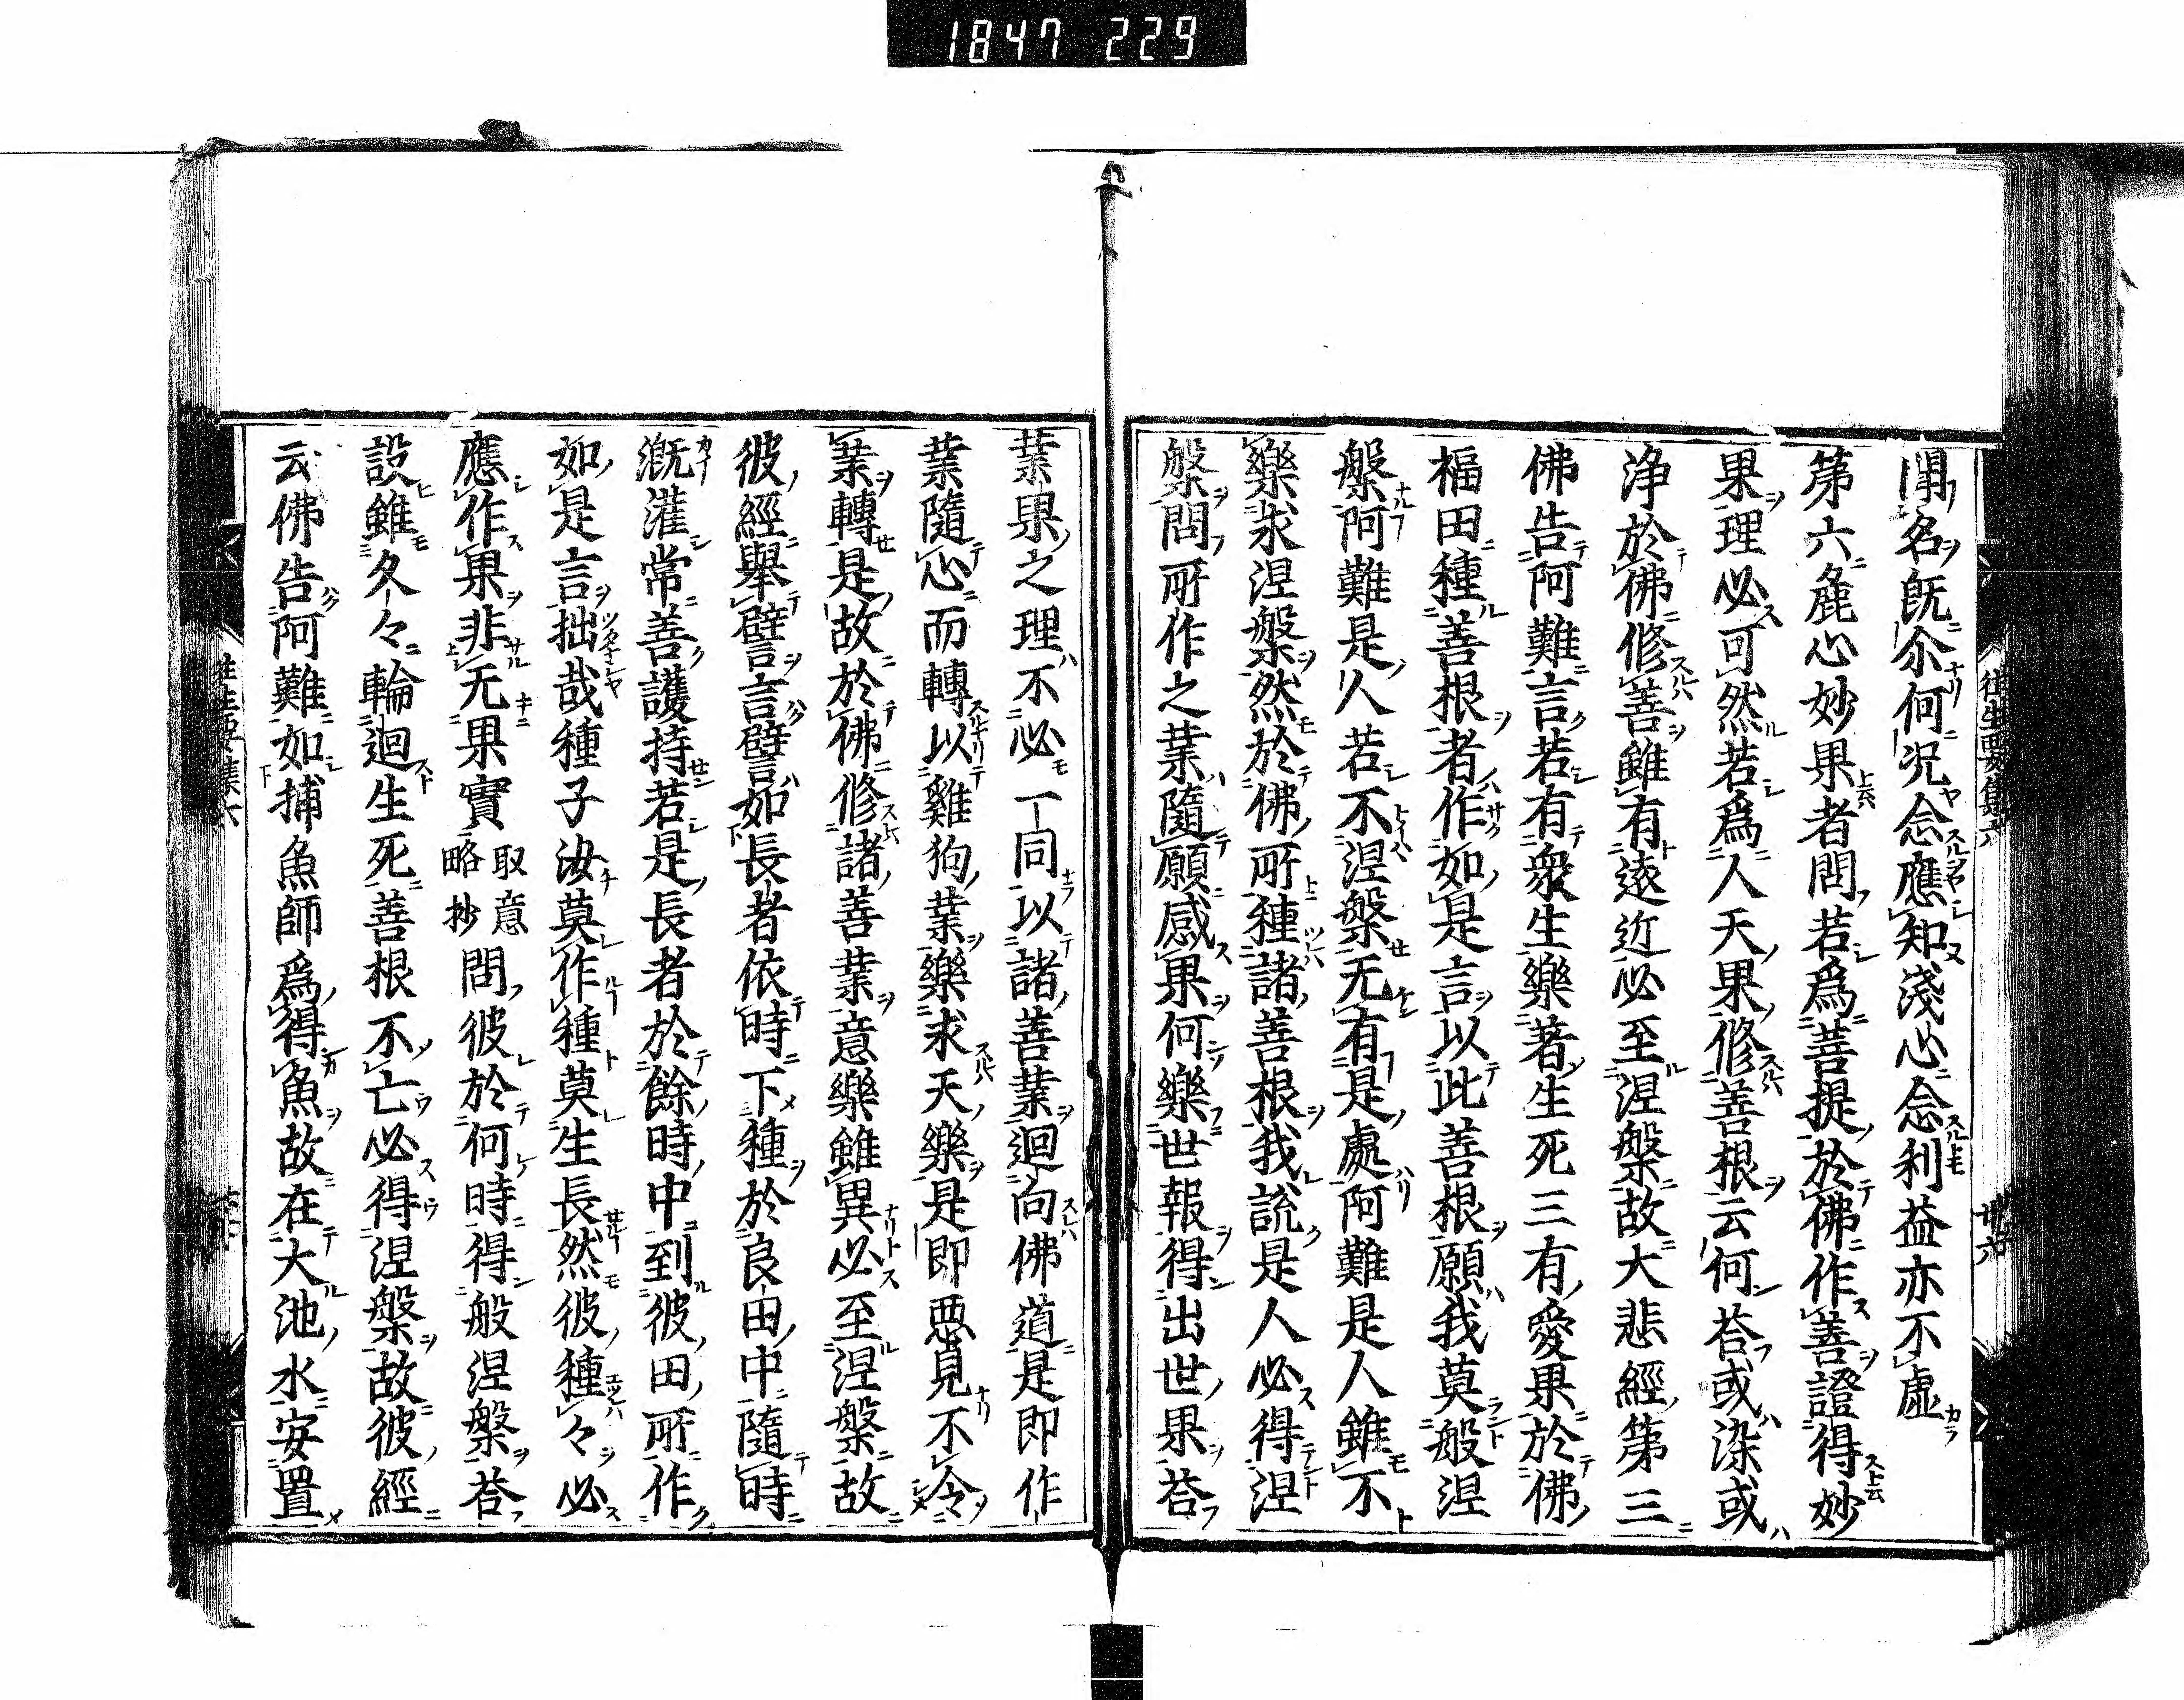 1847 229
往生要集六
聞名既尒何况念應知淺心念利益亦不虛
第六麁心妙果者問若爲菩提於佛作善證得妙
果理必可然若爲人天果修善根云何荅或染或
浄於佛修善雖有遠近必至涅槃故大悲經第三
佛告阿難言若有衆生樂著生死三有愛果於佛
福田種善根者作如是言以此善根願我莫般涅
槃阿難是人若不涅槃无有是處阿難是人雖不
樂求涅槃然於佛所種諸善根我說是人必得涅
槃問所作之業隨願感果何樂世報得出世果荅
業果之理不必一同以諸善業迴向佛道是即作
業隨心而轉以雞狗業樂求天樂是即惡見不令
業轉是故於佛修諸善業意樂雖異必至涅槃故
彼經舉譬言譬如長者依時下種於良田中隨時
漑灌常善護持若是長者於餘時中到彼田所作
如是言拙哉種子汝莫作種莫生長然彼種々必
應作果非无果實取意略抄問彼於何時得般涅槃荅
設雖久々輪迴生死善根不亡必得涅槃故彼經
云佛告阿難如捕魚師爲得魚故在大池水安置